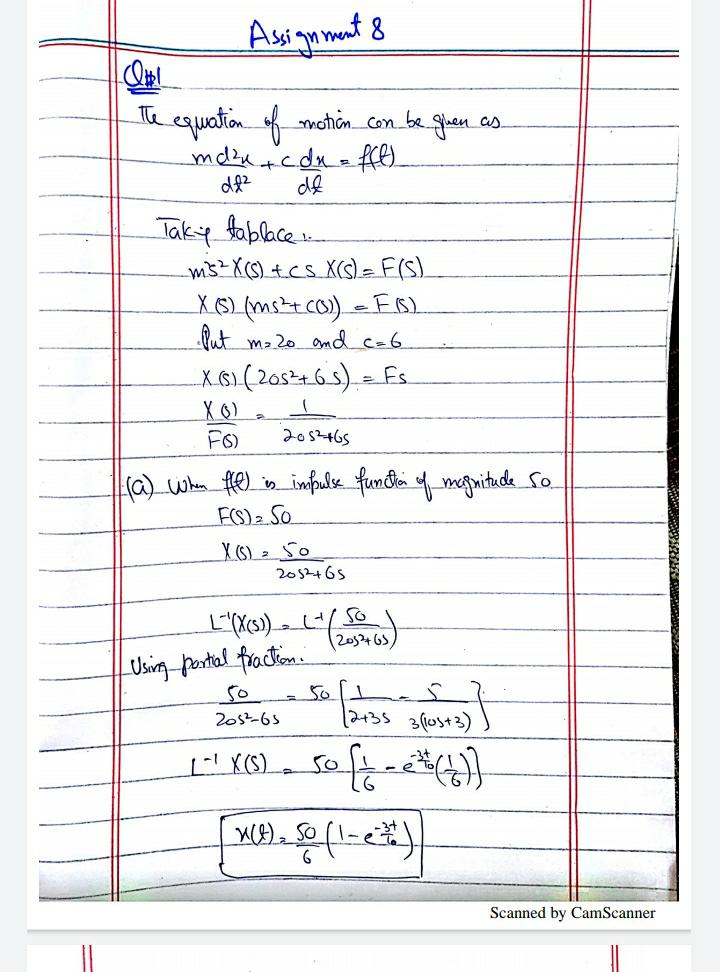 Assignment 8
Q#1
The equation of motion can be given as
md²x + c dx = f(t)
dt² dt
Taking laplace :-
ms² X(s) + cs X(s) = F(s)
X(s) (ms² + c(s)) = F(s)
Put m=20 and c=6
X(s) (20s² + 6s) = Fs
X(s) = 1
F(s) 20s²+6s
(a) When f(t) is impulse function of magnitude 50
F(s) = 50
X(s) = 50
20s²+6s
L⁻¹(X(s)) = L⁻¹ ( 50
20s²+6s )
Using partial fraction.
50 = 50 [ 1 - 5 ]
20s²-6s 2+3s 3(10s+3)
L⁻¹ X(s) = 50 [ 1/6 - e^-3t/10 (1/6) ]
x(t) = 50/6 (1 - e^-3t/10)
Scanned by CamScanner